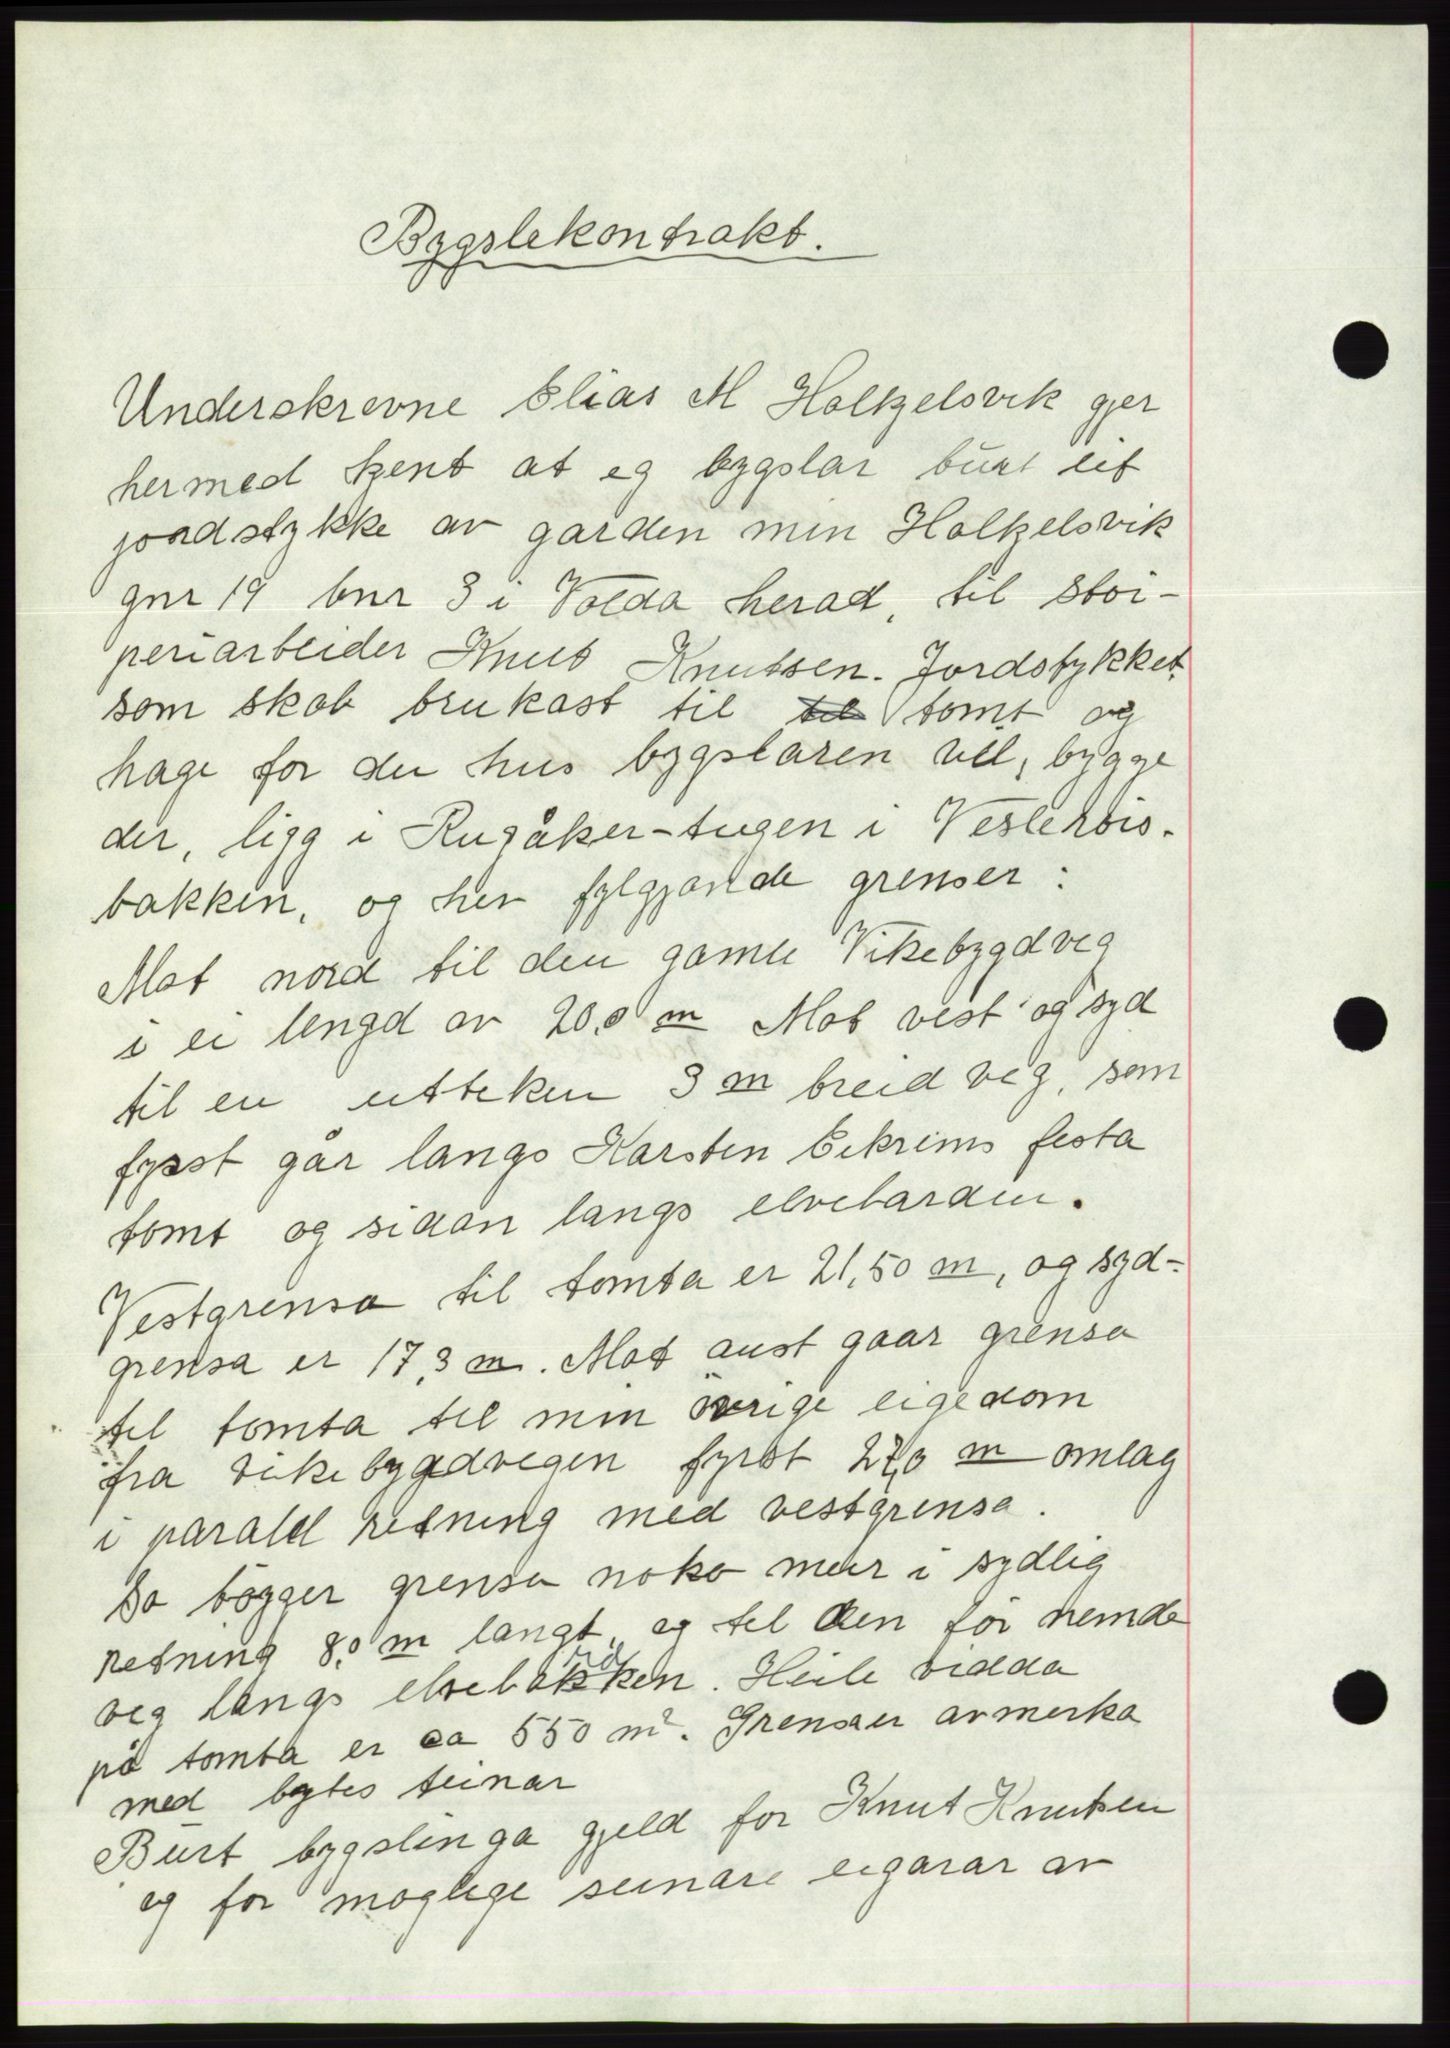 Bygslekontrakt.
Underskrevne Elias M Holkjelsvik gjer
hermed kjent at eg bygslar burt eit
jordstykke av garden min Holkjelsvik
gnr 19 bnr 3 i Volda herad, til støi-
periarbeider Knut Knutsen. Jordstykket,
som skab brukast til til tomt og
hage for dei hus bygslaren vil, bygge
der, ligg i Rugåker-tugen i Vesterøis-
bakken, og her fylgjande grenser:
Mot nord til den gamle Vikebygdveg
i ei lengd av 20,0 m Mot vest og syd
til en utteken 3 m breid veg, som
fyrst går langs Karsten Eikrims festa
tomt og sidan langs elvebarden.
Vestgrensa til tomta er 21,50 m, og syd-
grensa er 17,3 m. Mot aust gaar grensa
til tomta til min övrige eigedom
fra vikebygdvegen fyrst 27,0 m omlag
i paralel retning med vestgrensa.
So bögger grensa noko meir i sydlig
retning 8,0 m langt, og til den för nemde
veg langs elvebakken. Heile vidda
på tomta er ca 550 m². Grensa er avmerka
med bytes teinar
Burt bygslinga gjeld for Knut Knutsen
og for moglege seinare eigarar av